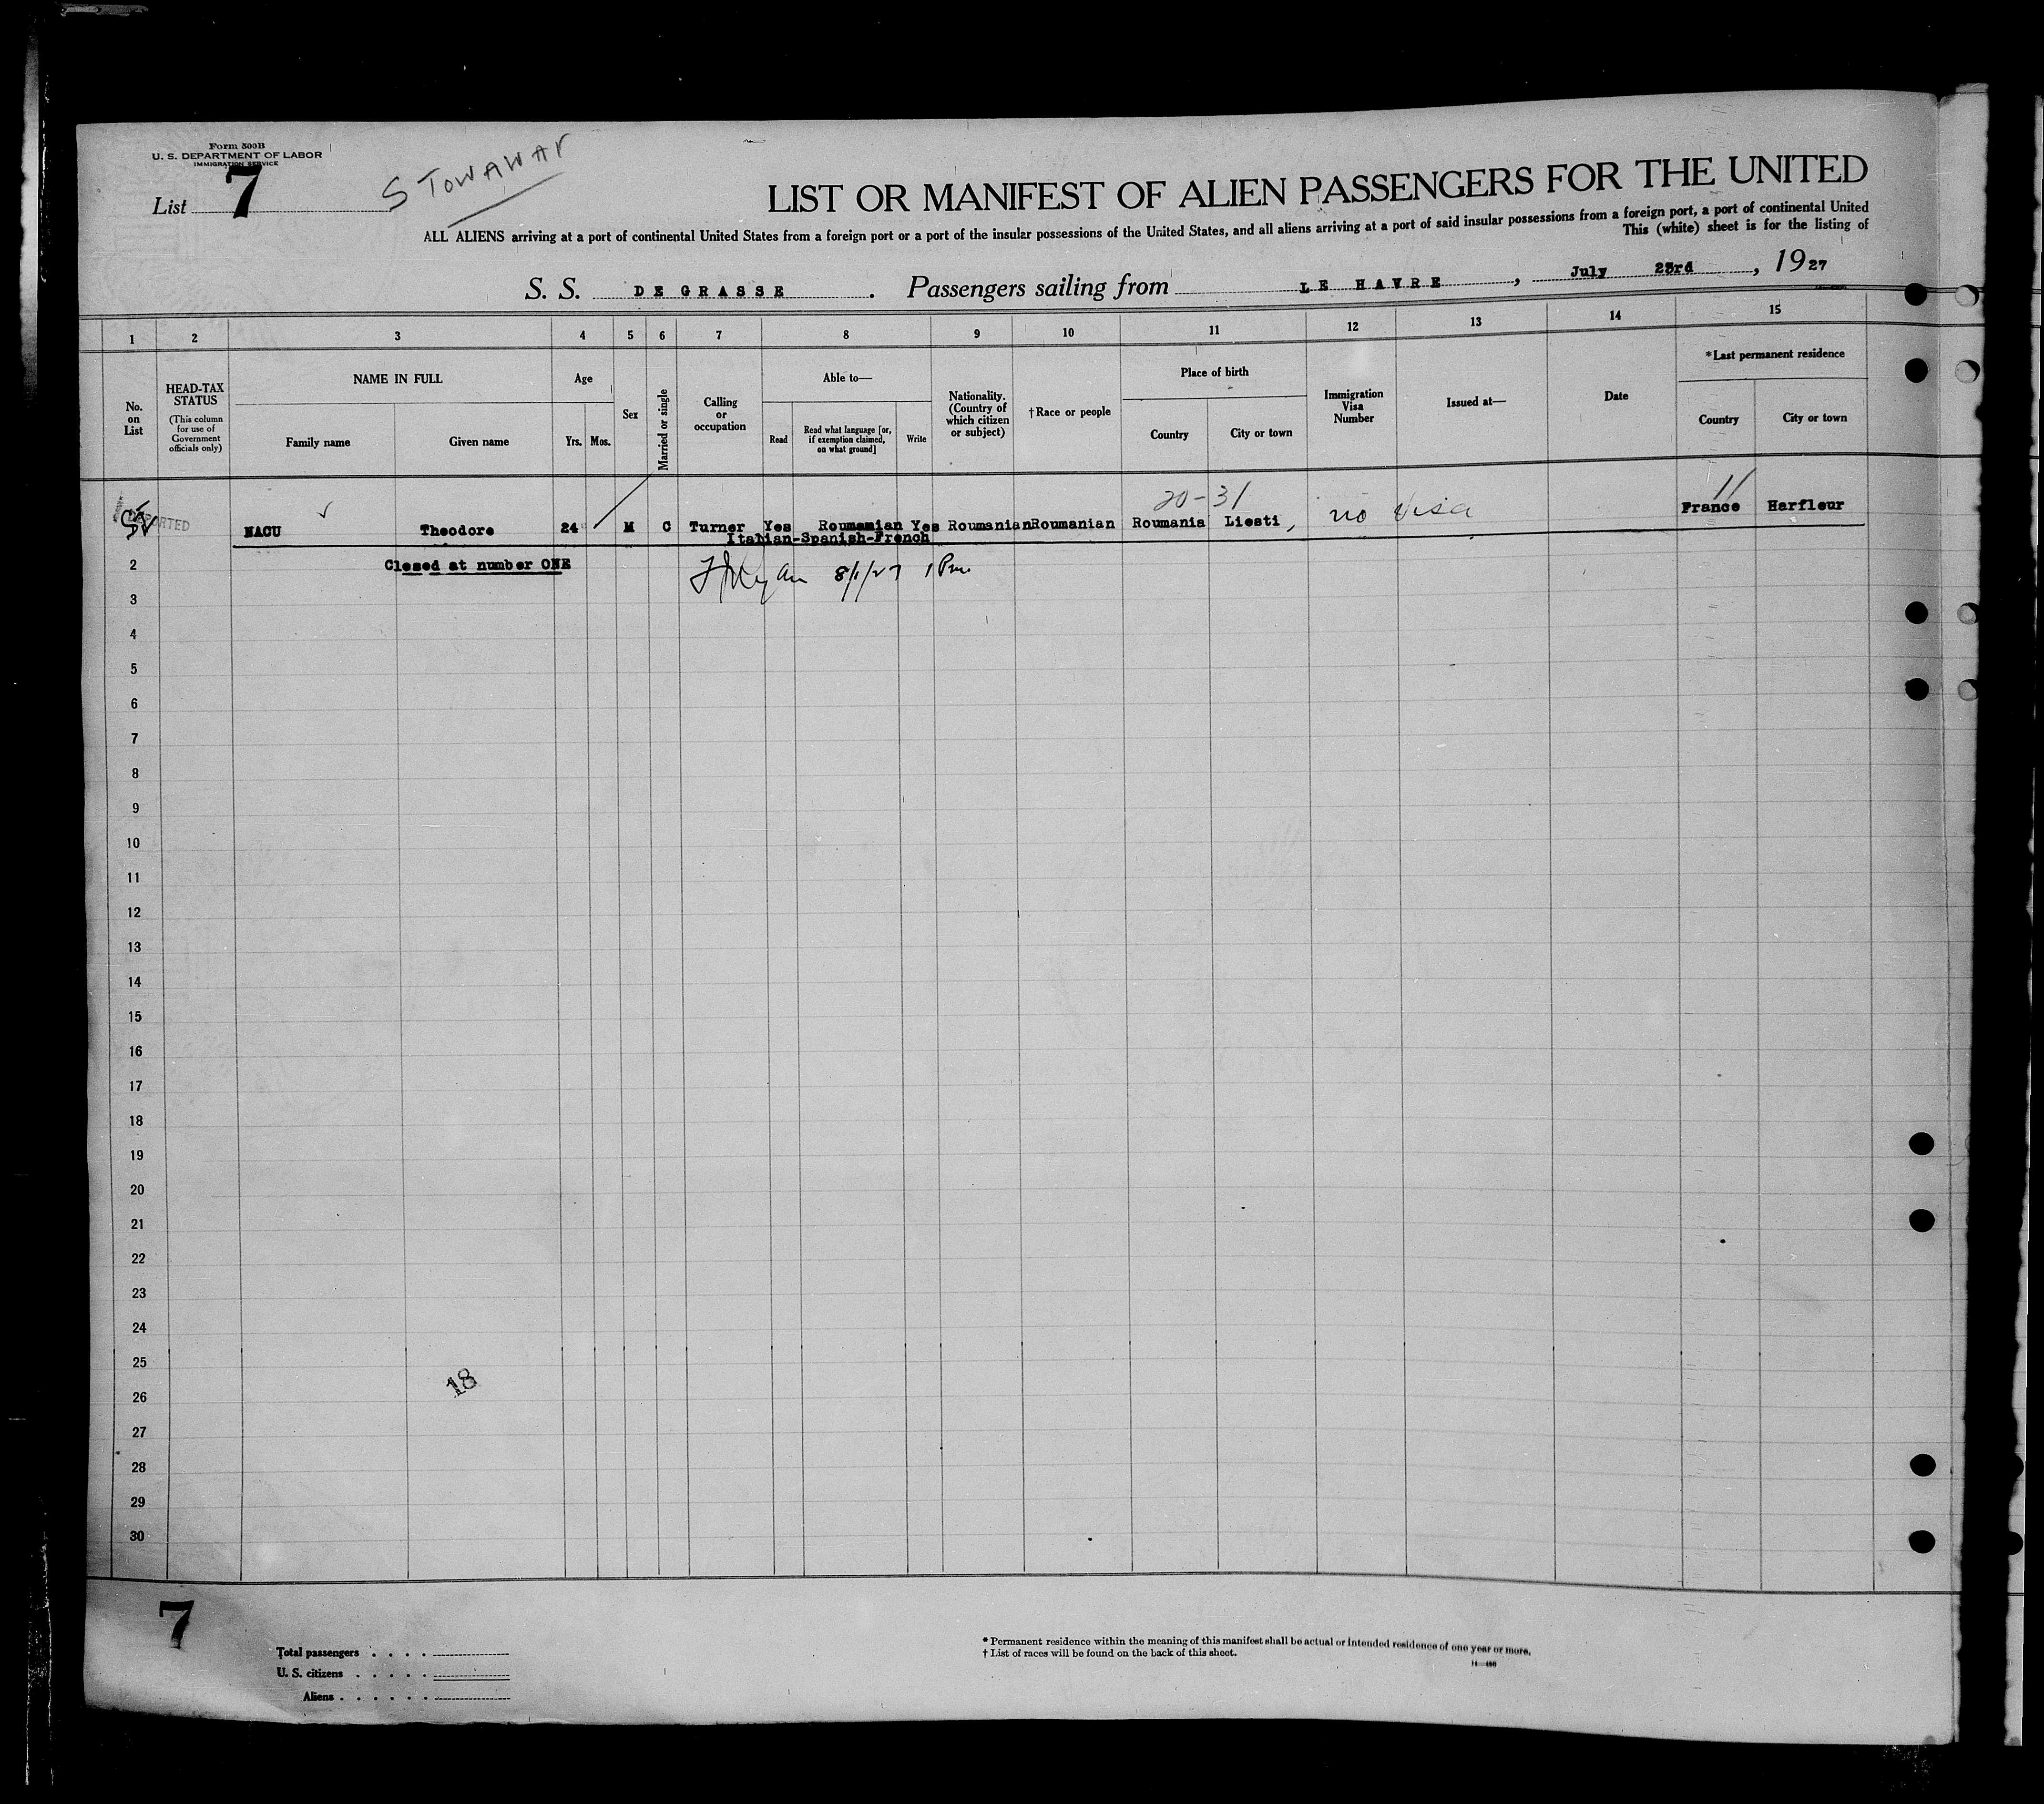 Form 500B
U. S. DEPARTMENT OF LABOR
IMMIGRATION SERVICE
List 7
STOWAWAY
LIST OR MANIFEST OF ALIEN PASSENGERS FOR THE UNITED
ALL ALIENS arriving at a port of continental United States from a foreign port or a port of the insular possessions of the United States, and all aliens arriving at a port of said insular possessions from a foreign port, a port of continental United
This (white) sheet is for the listing of
S. S. DE GRASSE . Passengers sailing from LE HAVRE , July 23rd , 1927
1 2 3 4 5 6 7 8 9 10 11 12 13 14 15
No. on List
HEAD-TAX STATUS
(This column for use of Government officials only)
NAME IN FULL
Family name
Given name
Age
Yrs.
Mos.
Sex
Married or single
Calling or occupation
Able to—
Read
Read what language [or, if exemption claimed, on what ground]
Write
Nationality. (Country of which citizen or subject)
†Race or people
Place of birth
Country
City or town
Immigration Visa Number
Issued at—
Date
*Last permanent residence
Country
City or town
20-31
11
DEPORTED
NACU Theodore 24 M C Turner Yes Roumanian Yes Roumanian Roumanian Roumania Liesti, no Visa France Harfleur
Italian-Spanish-French
2
Closed at number ONE
8/1/27 1 Pm
3
4
5
6
7
8
9
10
11
12
13
14
15
16
17
18
19
20
21
22
23
24
25
18
26
27
28
29
30
7
Total passengers . . . .
U. S. citizens . . . . .
Aliens . . . . . .
* Permanent residence within the meaning of this manifest shall be actual or intended residence of one year or more.
† List of races will be found on the back of this sheet.